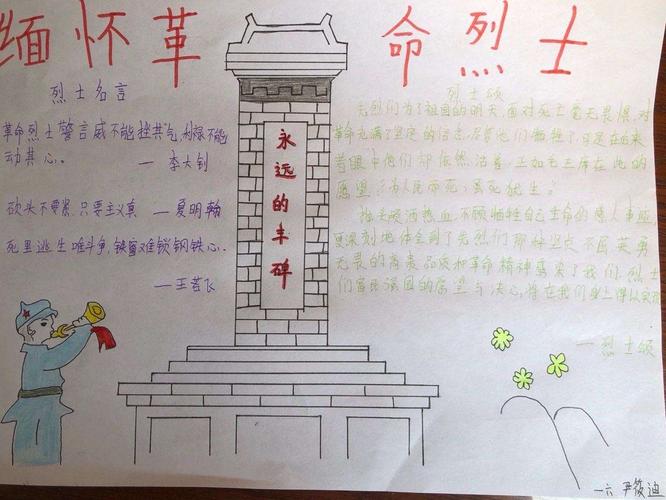 缅怀革命烈士
烈士名言
革命烈士警言威不能挫其气,利禄不能
动其心。
—李大钊
砍头不要紧,只要主义真 —夏明翰
死里逃生唯斗争,铁窗难锁钢铁心。
—王若飞
永远的丰碑
烈士颂
先烈们为了祖国的明天,面对死亡毫无畏惧,对
革命充满了坚定的信念,尽管他们牺牲了,可是在后来
者眼中他们却依然活着,正如毛主席在此的
愿望:"为人民而死,虽死犹生。"
抛头颅洒热血,不顾牺牲自己生命的感人事迹,
更深刻地体会到了先烈们那种坚贞不屈英勇
无畏的高贵品质和革命精神感染了我们,烈士
们富民强国的愿望与决心,将在我们身上得以实现
—烈士颂
一六 尹筱迪